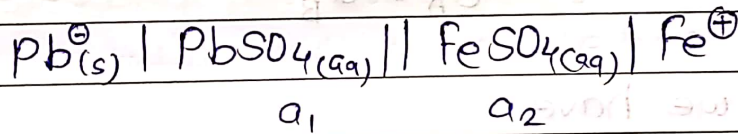 Pb⊖(s) | PbSO4(aq) || FeSO4(aq) | Fe⊕
a1 a2